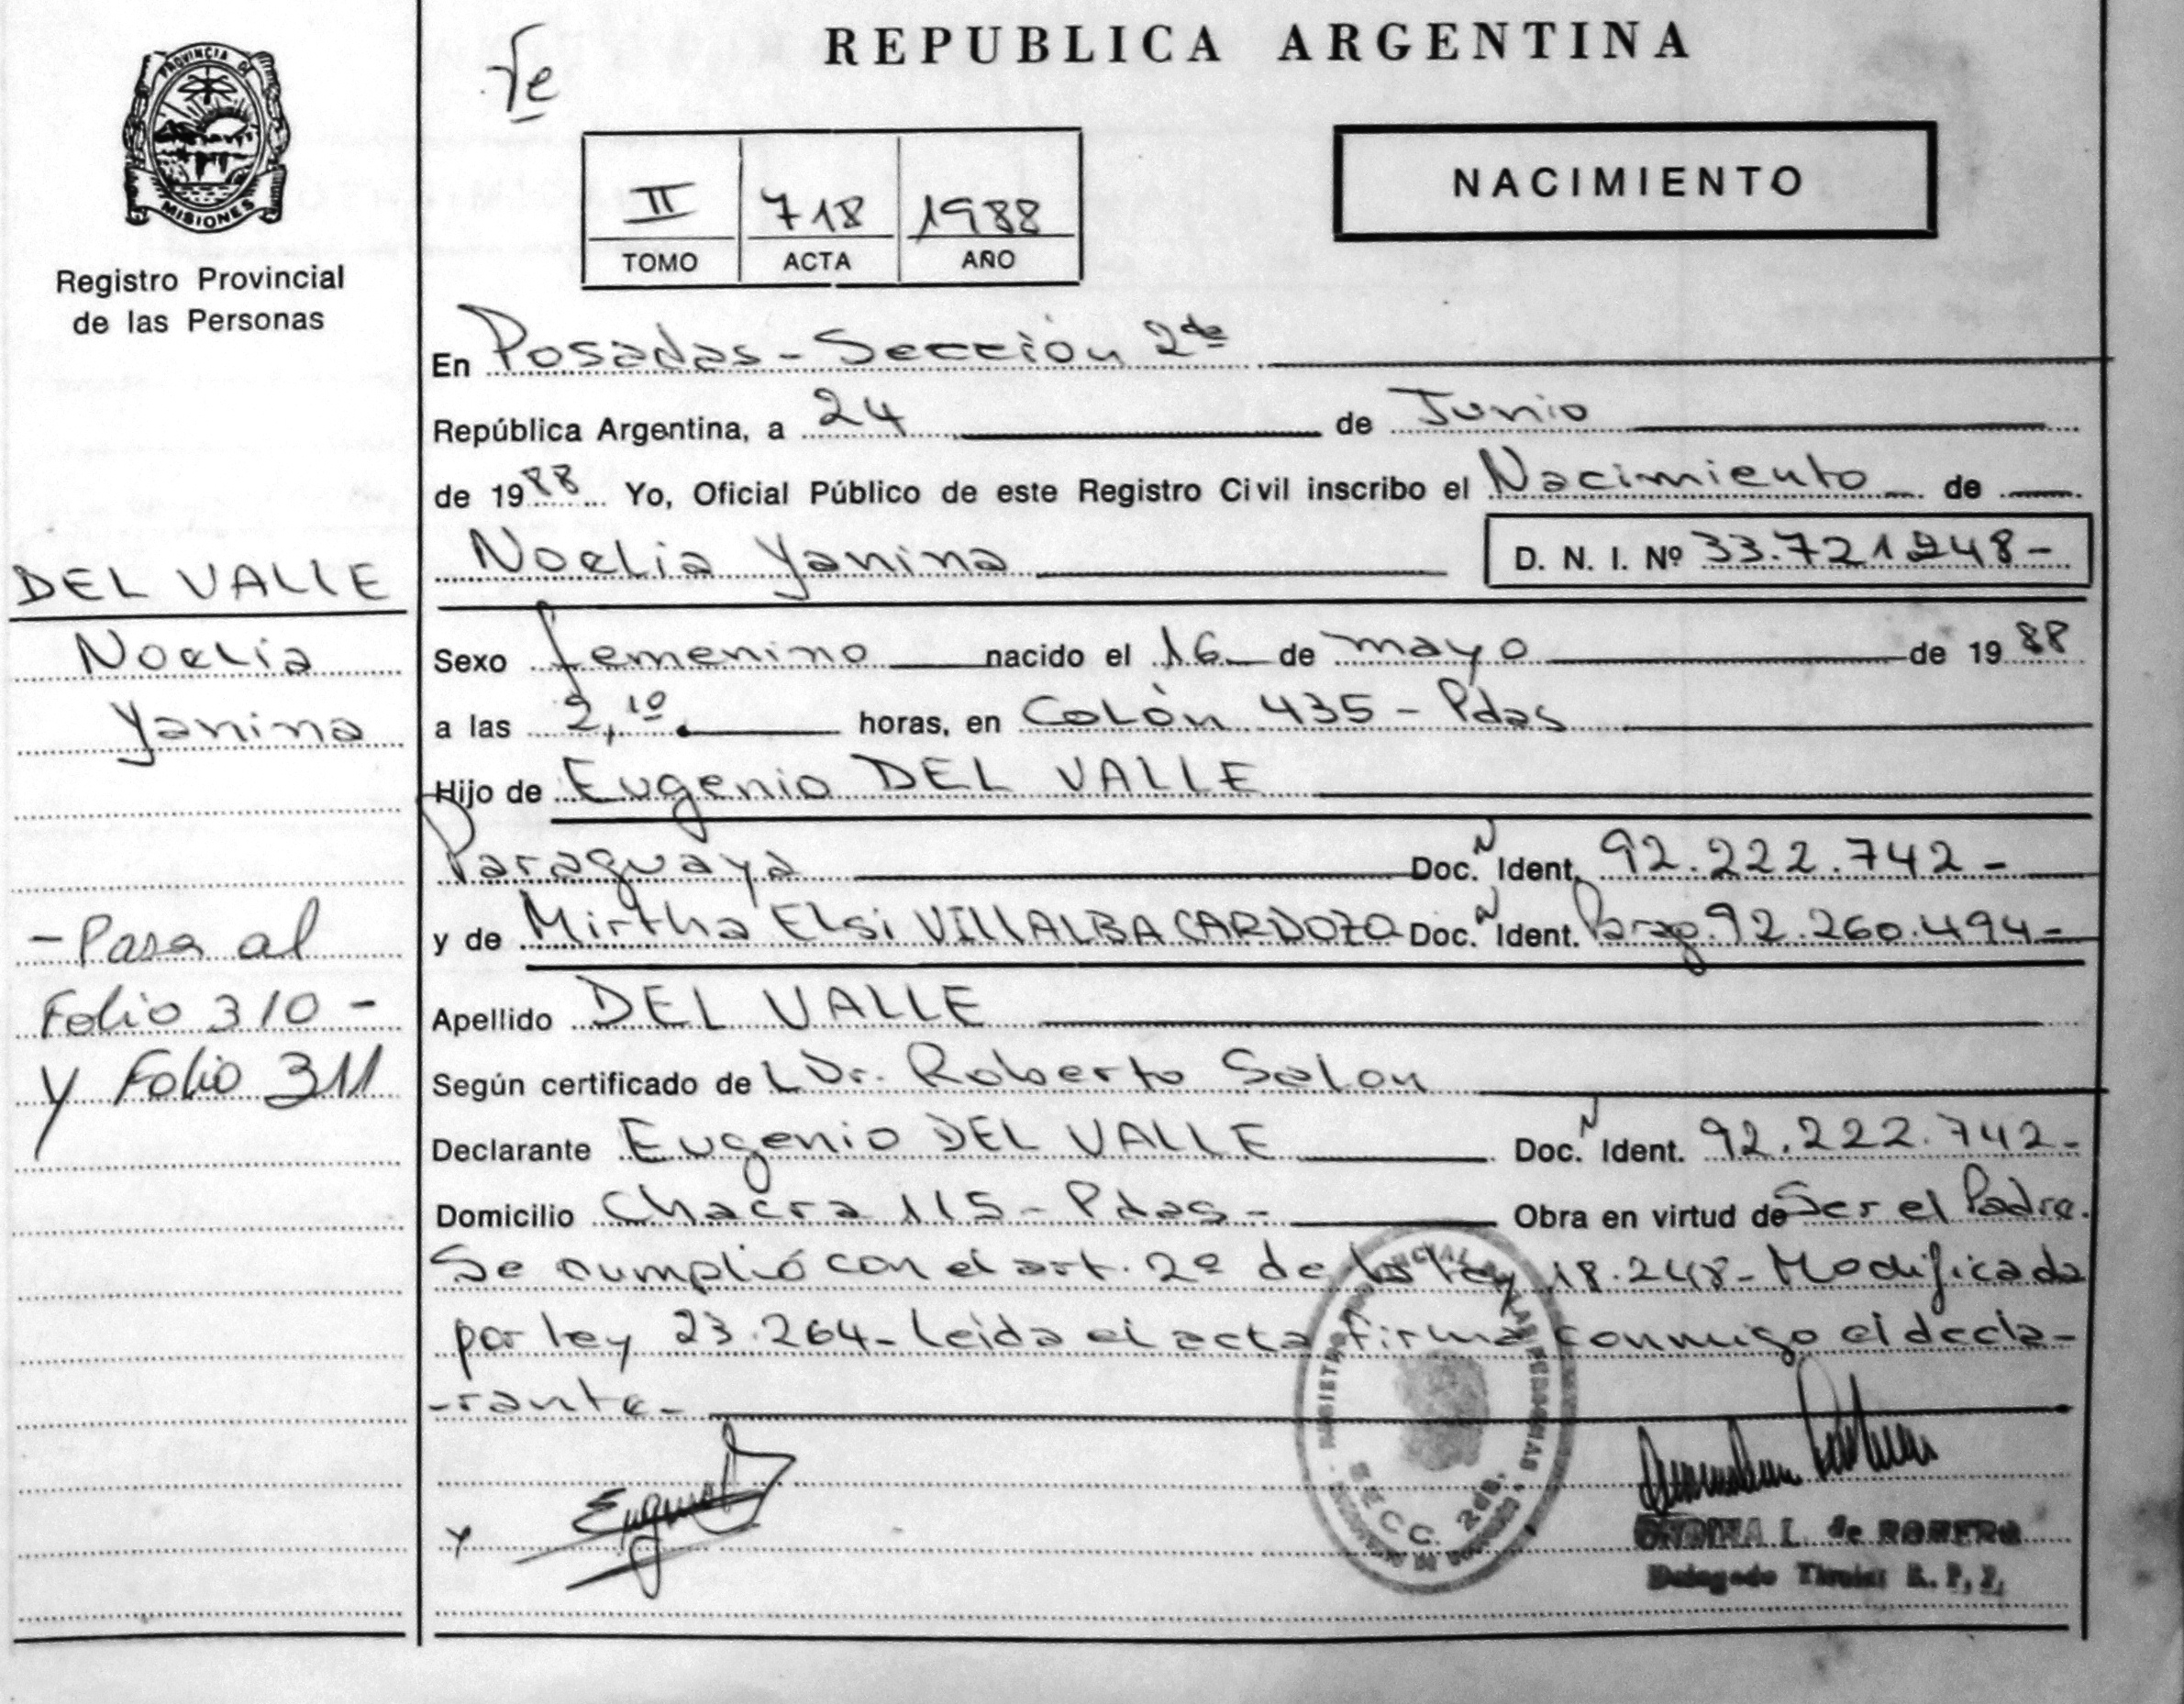 REPUBLICA ARGENTINA
PROVINCIA DE
MISIONES
Registro Provincial
de las Personas
II 718 1988
TOMO ACTA AÑO
NACIMIENTO
En Posadas - Sección 2da
República Argentina, a 24 de Junio
de 1988 Yo, Oficial Público de este Registro Civil inscribo el Nacimiento de
Noelia Yanina D. N. I. Nº 33.721248-
Sexo femenino nacido el 16 de mayo de 1988
a las 2,10 horas, en Colón 435 - Pdas
Hijo de Eugenio DEL VALLE
Paraguaya Doc. N Ident. 92.222.742-
y de Mirtha Elsi VILLALBA CARDOZO Doc. N Ident. Parag. 92.260.494-
Apellido DEL VALLE
Según certificado de L Dr. Roberto Solon
Declarante Eugenio DEL VALLE Doc. N Ident. 92.222.742-
Domicilio Chacra 115 - Pdas - Obra en virtud de Ser el Padre.
Se cumplió con el art. 2º de la ley 18.248 - Modificada
por ley 23.264 - leida el acta firma conmigo el decla-
-rante-
DEL VALLE
Noelia
Yanina
- Pasa al
Folio 310 -
y Folio 311
SECC. 2da.
L. de ROMERO
Delegado Titular R. P. P.